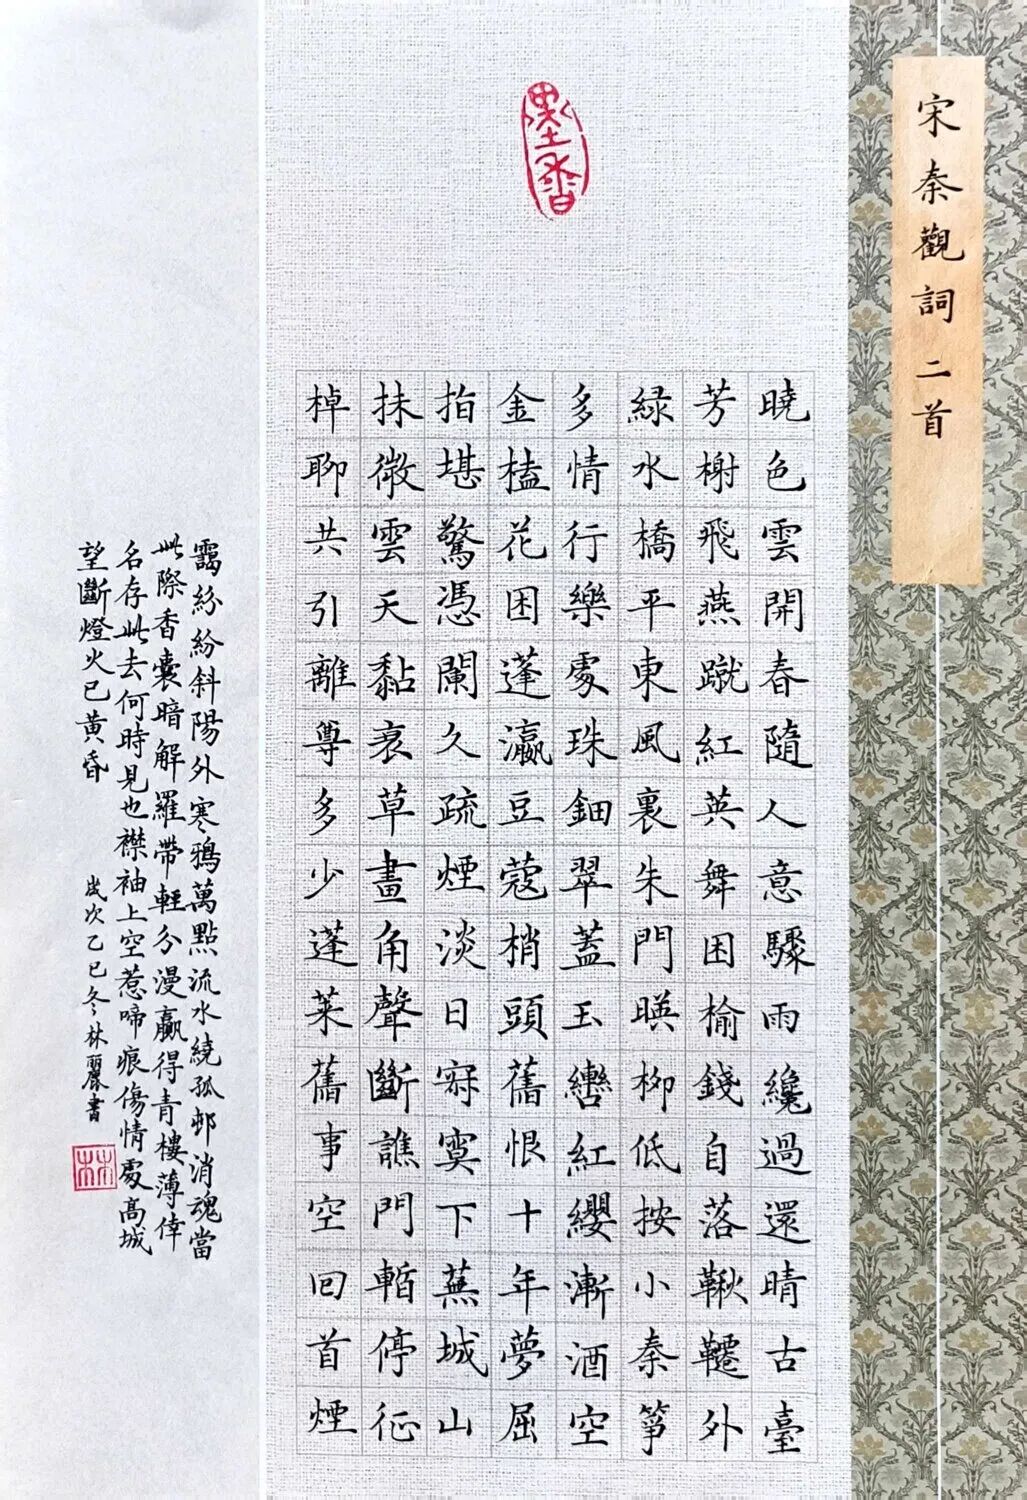 宋秦觀詞二首
墨香
曉色雲開春隨人意驟雨纔過還晴古臺
芳榭飛燕蹴紅英舞困榆錢自落鞦韆外
緑水橋平東風裏朱門暎柳低按小秦箏
多情行樂處珠鈿翠蓋玉轡紅纓漸酒空
金榼花困蓬瀛豆蔻梢頭舊恨十年夢屈
指堪驚憑闌久疏煙淡日寂寞下蕪城山
抹微雲天黏衰草畫角聲斷譙門暫停征
棹聊共引離尊多少蓬萊舊事空回首煙
靄紛紛斜陽外寒鴉萬點流水繞孤邨消魂當
此際香囊暗解羅帶輕分漫贏得青樓薄倖
名存此去何時見也襟袖上空惹啼痕傷情處高城
望斷燈火已黃昏
歲次乙巳冬林麗書
林